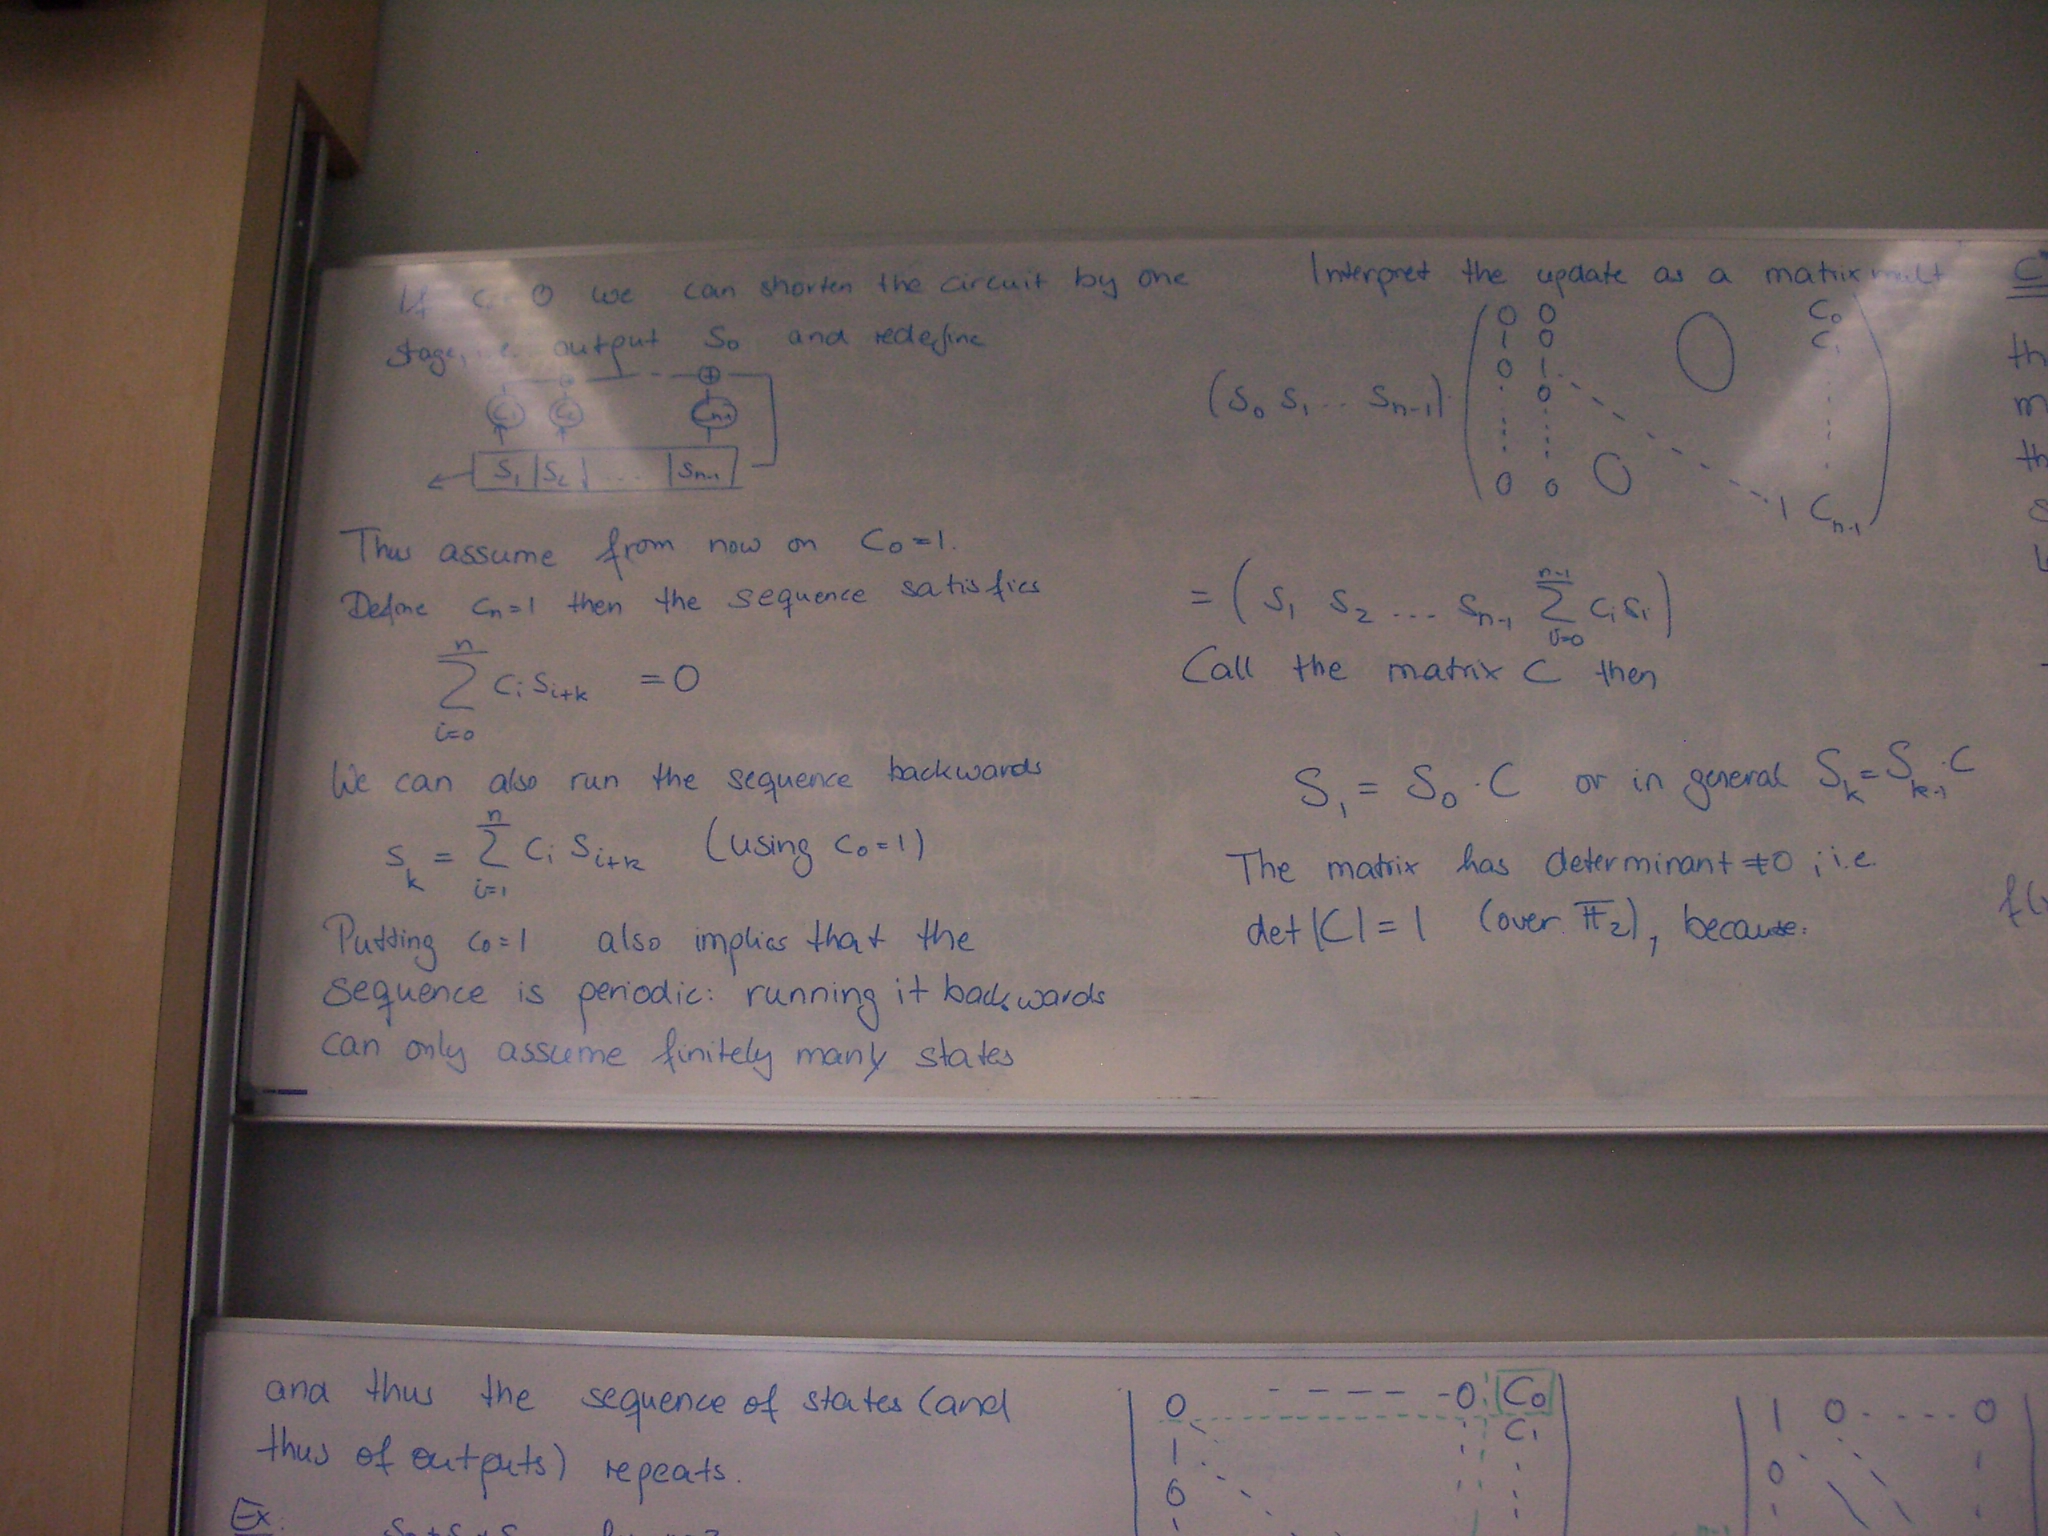 If C₀=0 we can shorten the circuit by one
stage, i.e. output S₀ and redefine
⊕ ⊕
C₁ C₂ Cₙ₋₁
S₁ | S₂ | ... | Sₙ₋₁
Thus assume from now on C₀=1.
Define Cₙ=1 then the sequence satisfies
n
∑ Cᵢ Sᵢ₊ₖ = 0
i=0
We can also run the sequence backwards
n
Sₖ = ∑ Cᵢ Sᵢ₊ₖ (using C₀=1)
i=1
Putting C₀=1 also implies that the
sequence is periodic: running it backwards
can only assume finitely many states
Interpret the update as a matrix mult
0 0 C₀
1 0 0 C₁
0 1
(S₀ S₁ ... Sₙ₋₁)
0
0 0 0 1 Cₙ₋₁
n-1
= (S₁ S₂ ... Sₙ₋₁ ∑ Cᵢ Sᵢ)
i=0
Call the matrix C then
S₁ = S₀ · C or in general Sₖ = Sₖ₋₁ · C
The matrix has determinant ≠0, i.e.
det |C| = 1 (over F₂), because:
th
m
th
s
f(
and thus the sequence of states (and
thus of outputs) repeats.
Ex:
0 - - - - - 0 C₀
1 C₁
0
1 0 - - - - 0
0